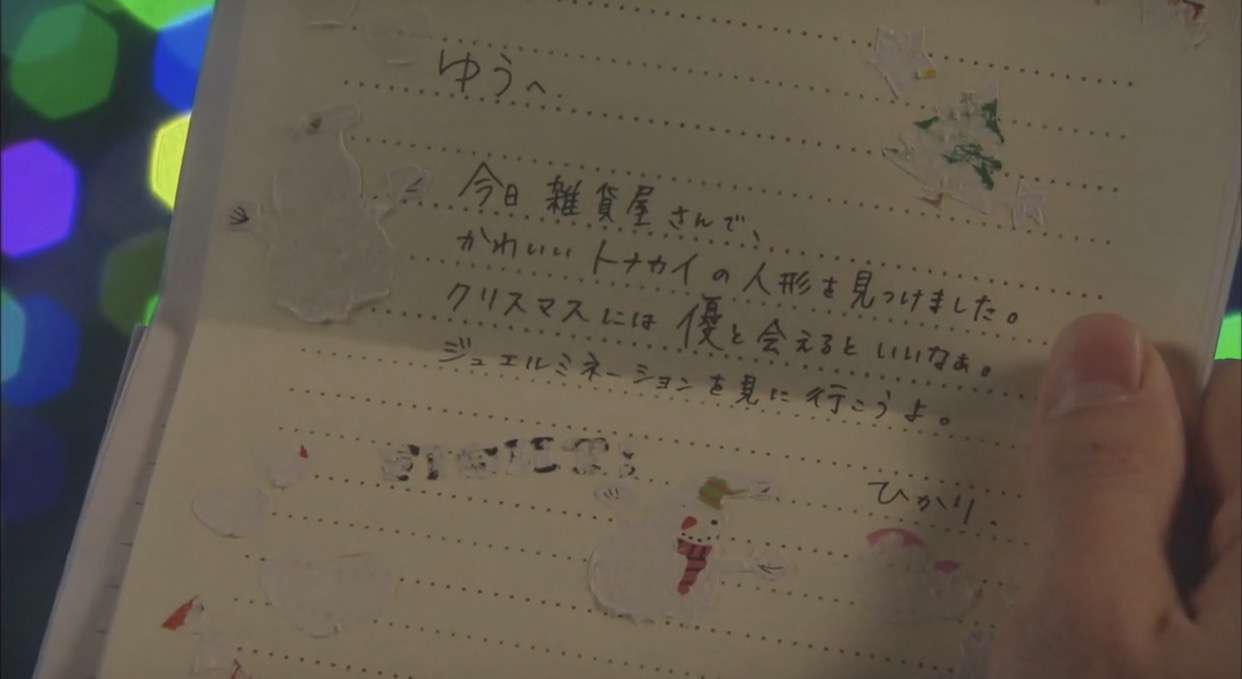 ゆうへ.
今日雑貨屋さんで、
かわいいトナカイの人形を見つけました。
クリスマスには優と会えるといいなぁ。
ジュエルミネーションを見に行こうよ。
ひかり.